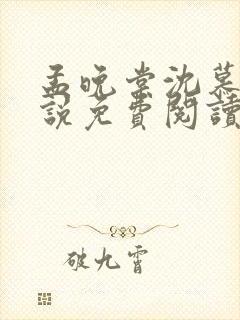 孟晚棠沈慕
說免費閱讀
破九霄